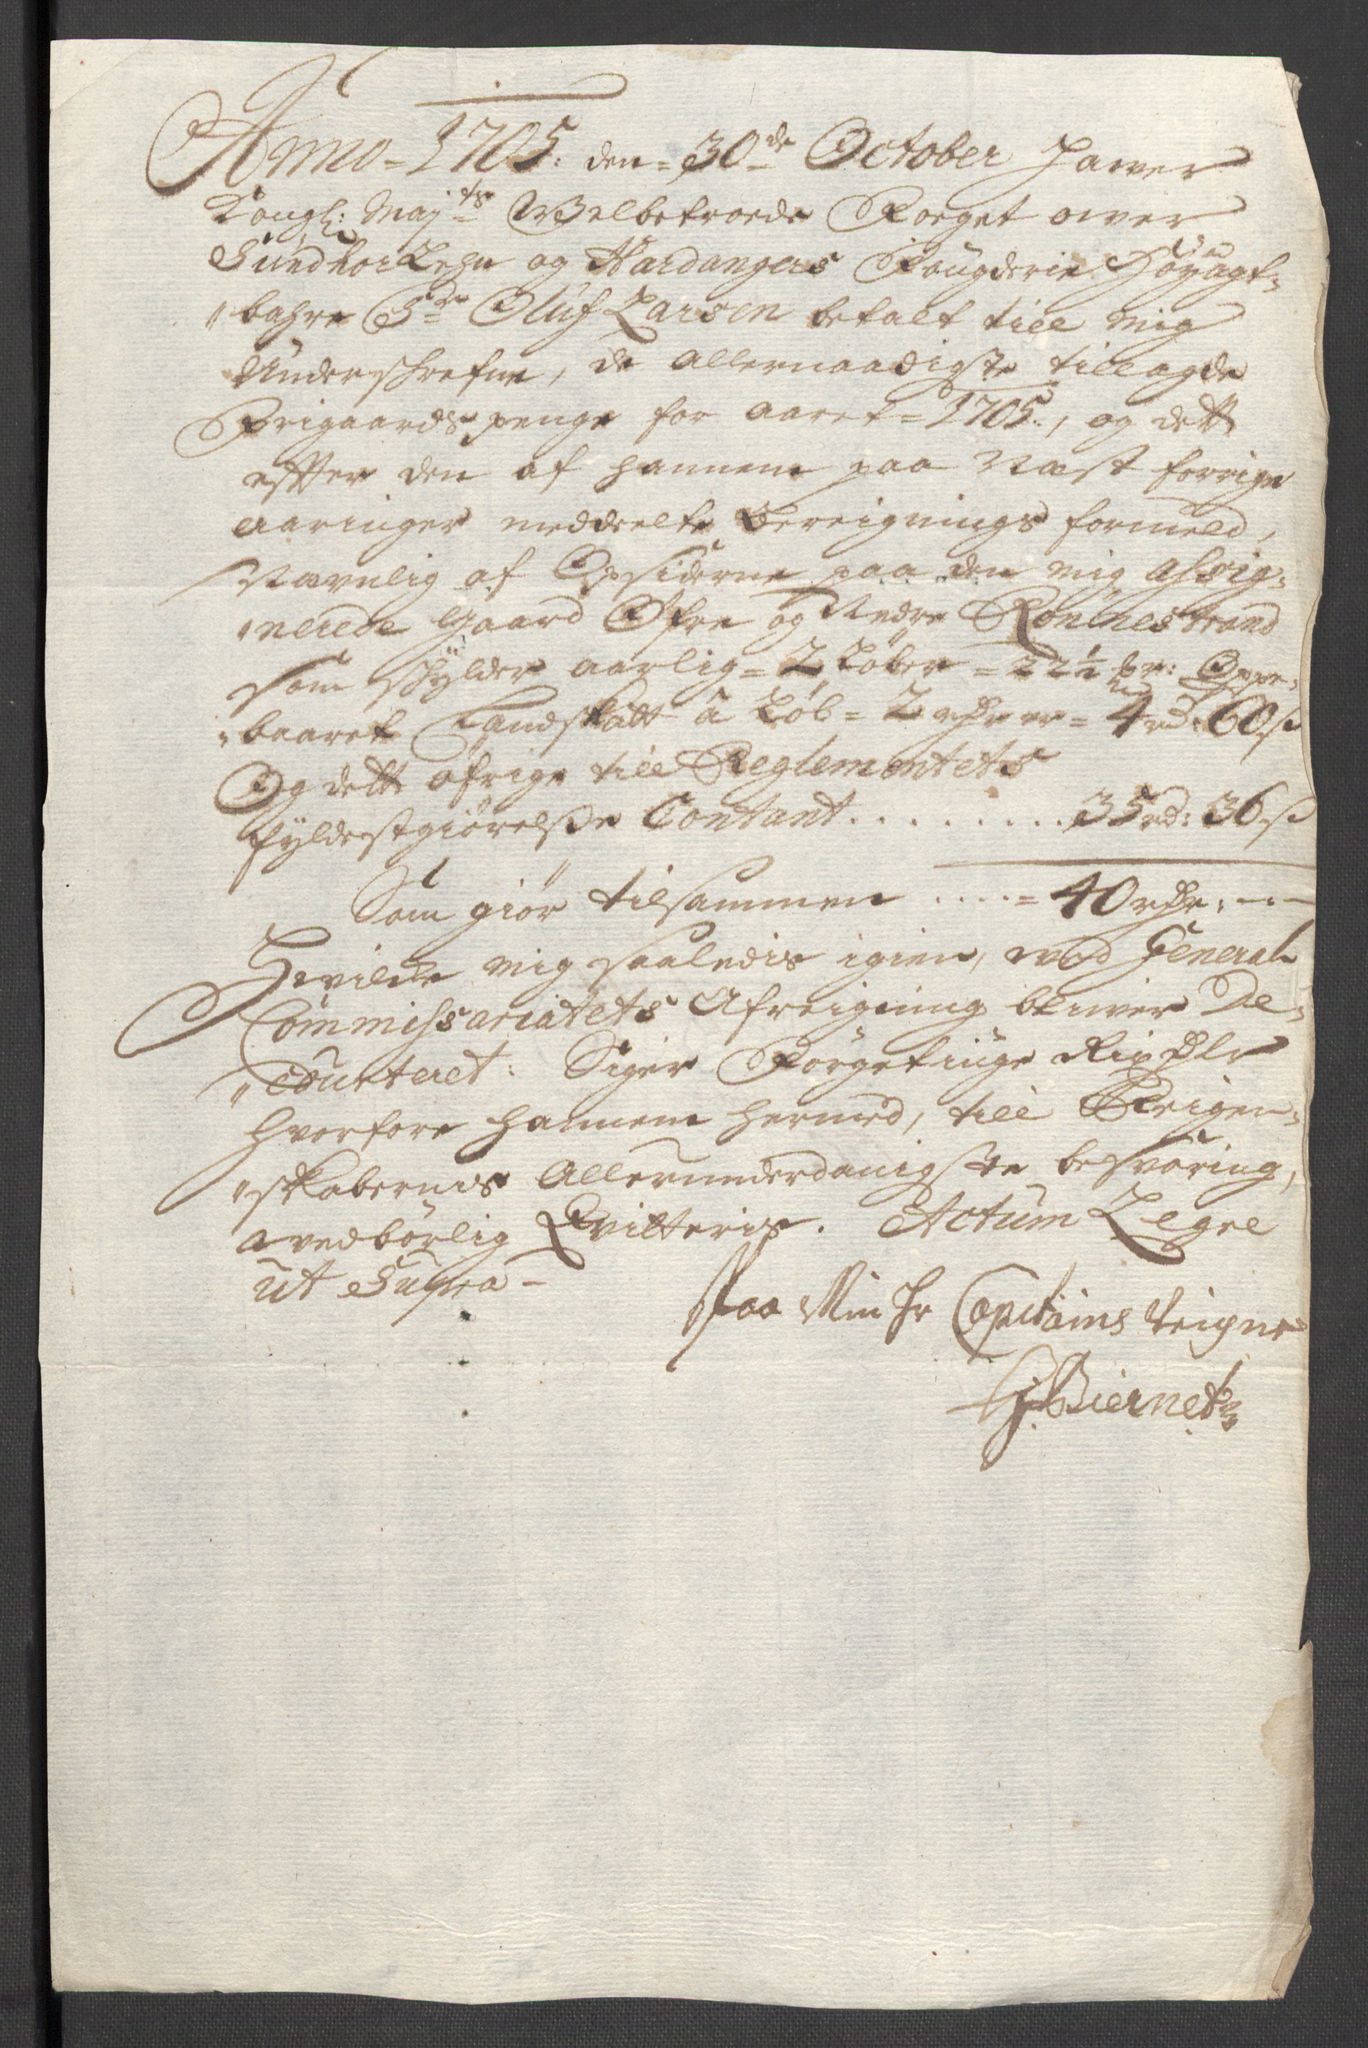 Anno 1705: den 30de October Hawer
Kongl: Mayts Welbetroede Foeget ower
Sundhorlehn og Hardangers Fougderie Höyagt-
bahre Sr Oluf Larsen betalt till mig
Underschrefne, de allernaadigste tillagde
Frigaards penge for aaret 1705, og dett
effter den af hannem paa Næst forrige
aaringer meddeelte Bereignings formeld,
Nævnlig af Opsiderne paa den mig assig-
nerede Gaard Öfre og Nedre Rönnestrand
som schylder aarlig = 2 Löber = 22½ pr: Oppe-
baaret Landskatt â Löb = 2 rdr er = 4 rd: 60 s
Og dett öfrige till Reglementets
fyldestgiörelsse Contant . . . . . . . . . 35 rd: 36 s
Som giör tilsammen . . . . = 40 rdr: - - -
Hvilcke mig saaledis igien, wed General
Commissariatets Afreigning bliwer De-
courteret: Siger Förgetiuge Rixdlr
hvorfore hannem hermed, till Reigen-
skabernis Allerunderdanigste besvaring,
wedbörlig Qvitteris. Actum Legre
ut Supra
Paa Min Hr Capitains Veigne
H. Biernetz